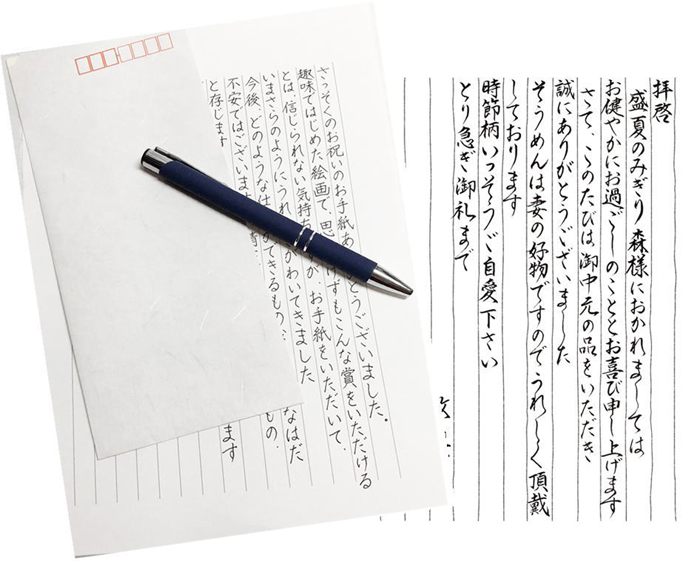 拝啓
盛夏のみぎり森様におかれましては
お健やかにお過ごしのこととお喜び申し上げます
さて、このたびは御中元の品をいただき
誠にありがとうございました
そうめんは妻の好物ですのでうれしく頂戴
しております
時節柄いっそうご自愛下さい
とり急ぎ御礼まで
さっそくのお祝いのお手紙あ とうございました。
趣味ではじめた絵画で、思 けずもこんな賞をいただける
とは、信じられない気持ち が、お手紙をいただいて、
いまさらのようにうれ わいてきました
今後、どのような仕 できるもの
不安ではございま なはだ
と存じます ます